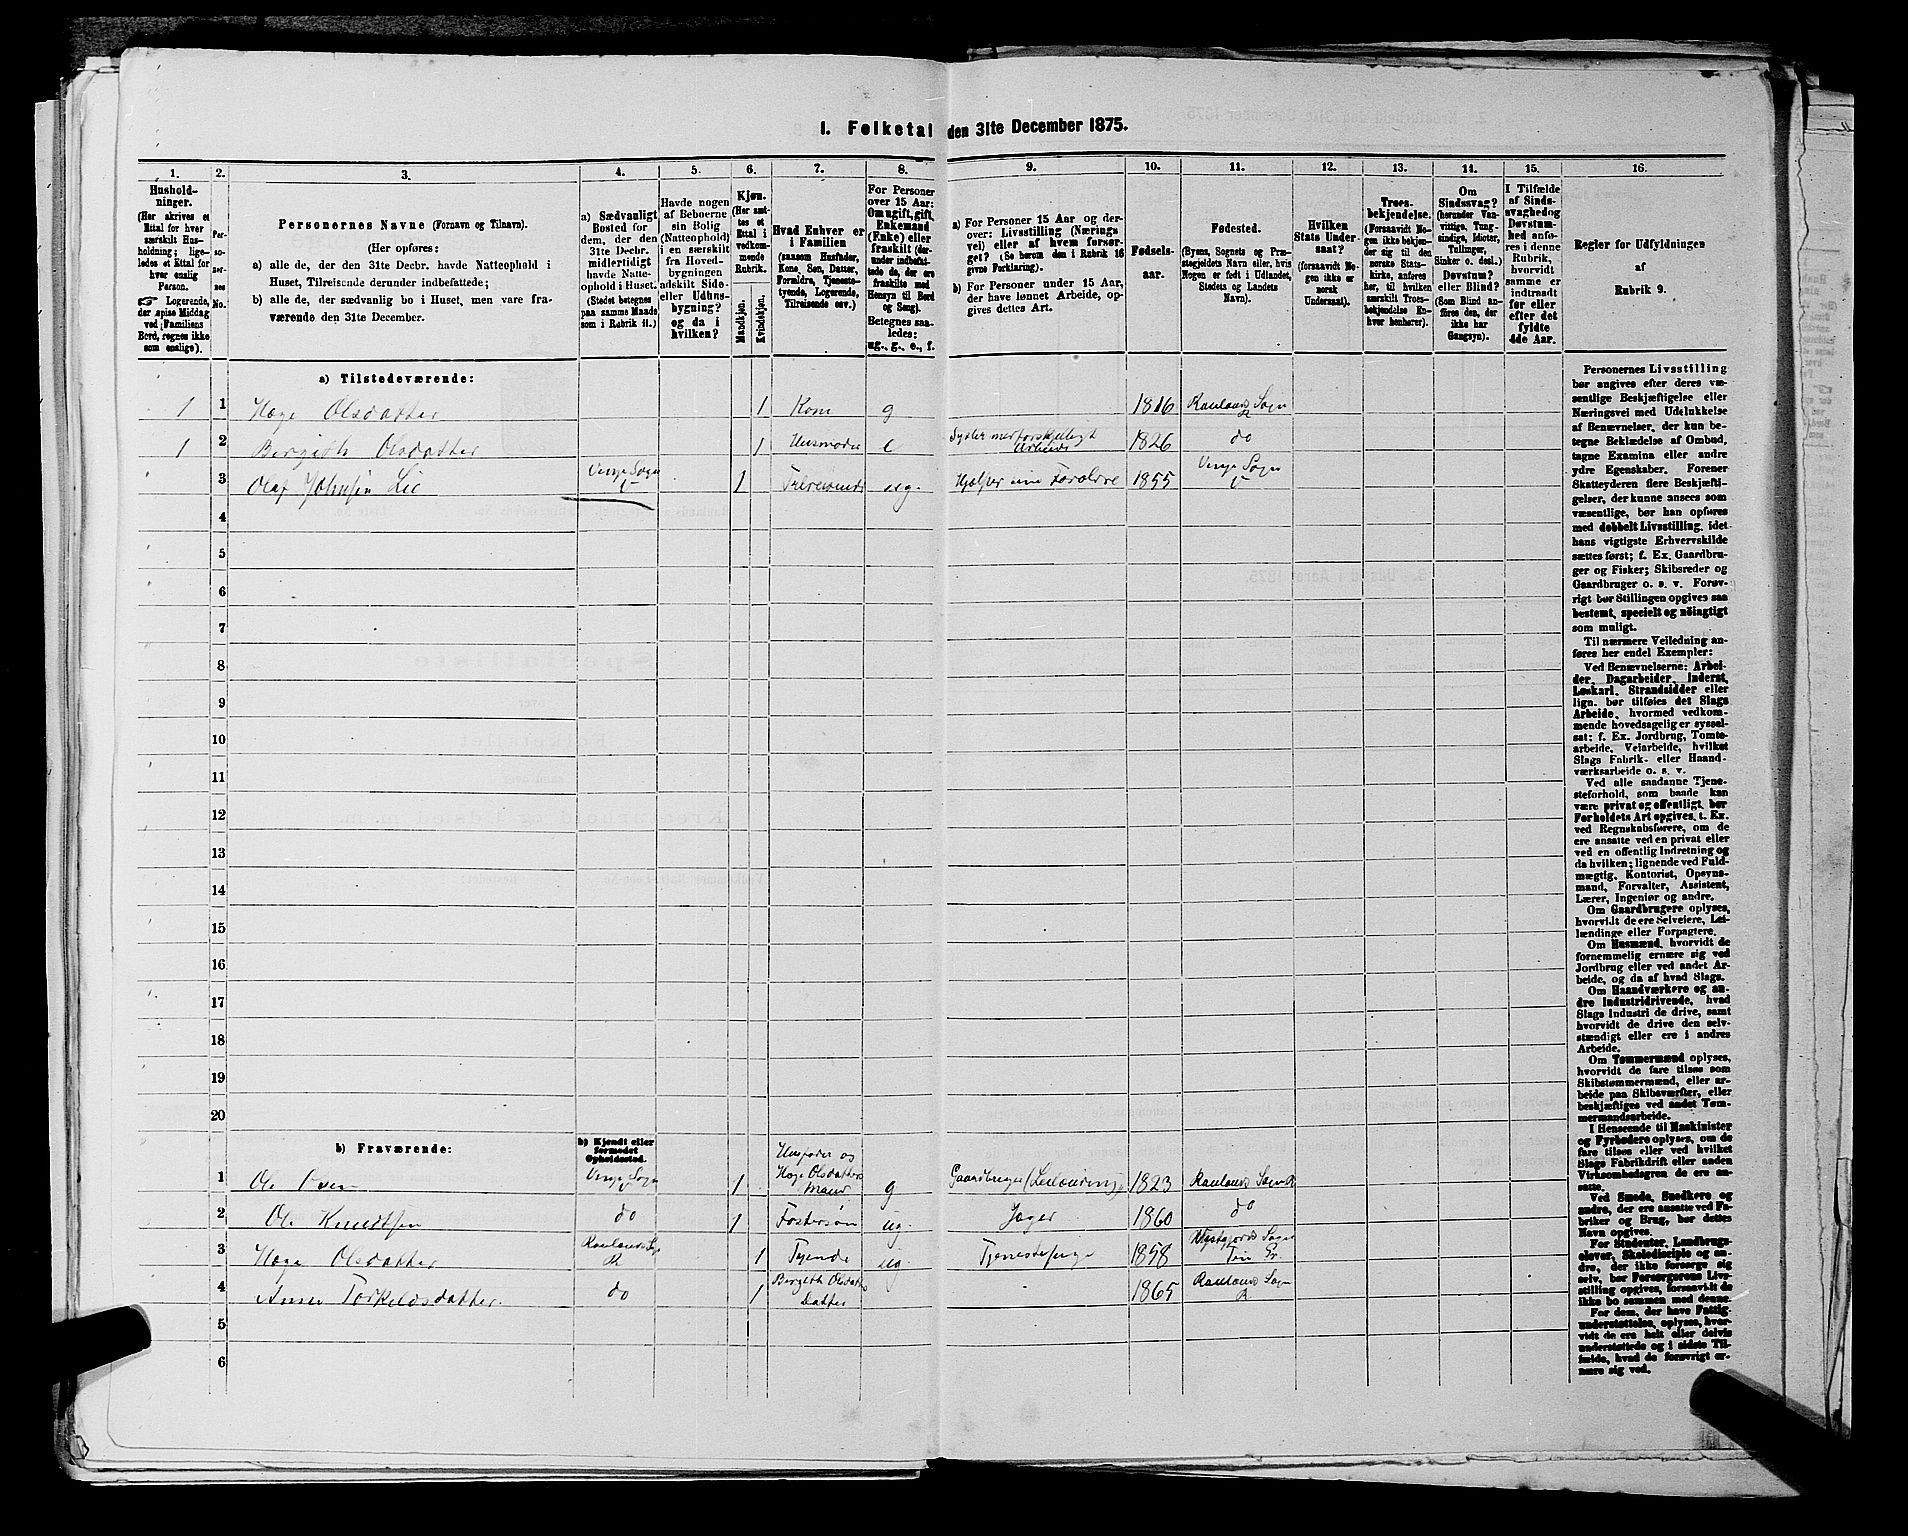 1. Folketal den 31te December 1875.
1. 2. 3. 4. 5. 6. 7. 8. 9. 10. 11. 12. 13. 14. 15. 16.
Hushold-
ninger.
(Her skrives et
Ettal for hver
særskilt Hus-
holdning; lige-
ledes et Ettal for
hver enslig
Person.
☞ Logerende,
der spise Middag
ved Familiens
Bord, regnes ikke
som enslige).
Per-
so-
ner-
nes
No.
Personernes Navne (Fornavn og Tilnavn).
(Her opføres:
a) alle de, der den 31te Decbr. havde Natteophold i
Huset, Tilreisende derunder indbefattede;
b) alle de, der sædvanlig bo i Huset, men vare fra-
værende den 31te December.
a) Sædvanligt
Bosted for
dem, der den
31te Decbr.
midlertidigt
havde Natte-
ophold i Huset.
(Stedet betegnes
paa samme Maade
som i Rubrik 11.)
Havde nogen
af Beboerne
sin Bolig
(Natteophold)
i en særskilt
fra Hoved-
bygningen
adskilt Side-
eller Udhus-
bygning?
og da i
hvilken?
Kjøn.
(Her sæt-
tes et
Ettal i
vedkom-
mende
Rubrik.
Mandkjøn.
Kvindekjøn.
Hvad Enhver er
i Familien
(saasom Husfader,
Kone, Søn, Datter,
Forældre, Tjeneste-
tyende, Logerende,
Tilreisende osv.)
For Personer
over 15 Aar:
Om ugift, gift,
Enkemand
(Enke) eller
fraskilt (der-
under indbefat-
tede de, der ere
fraskilte med
Hensyn til Bord
og Seng).
Betegnes saa-
ledes:
ug., g., e., f.
a) For Personer 15 Aar og der-
over: Livsstilling (Nærings-
vei) eller af hvem forsør-
get? (Se herom den i Rubrik 16
givne Forklaring).
b) For Personer under 15 Aar,
der have lønnet Arbeide, op-
gives dettes Art.
Fødsels-
aar.
Fødested.
(Byens, Sognets og Præ-
stegjeldets Navn eller, hvis
Nogen er født i Udlandet,
Stedets og Landets
Navn).
Hvilken
Stats Under-
saat?
(forsaavidt No-
gen ikke er
norsk
Undersaat).
Troes-
bekjendelse.
(Forsaavidt No-
gen ikke bekjen-
der sig til den
norske Stats-
kirke, anføres
her, til hvilken
særskilt Troes-
bekjendelse En-
hver henhører).
Om
Sindssvag?
(herunder Van-
vittige, Tung-
sindige, Idioter,
Tullinger,
Sinker o. desl.)
Døvstum?
eller Blind?
(Som Blind an-
føres den, der
ikke har
Gangsyn).
I Tilfælde
af Sinds-
svaghed og
Døvstum-
hed anfø-
res i denne
Rubrik,
hvorvidt
samme er
indtraadt
før eller
efter det
fyldte
4de Aar.
Regler for Udfyldningen
af
Rubrik 9.
a) Tilstedeværende:
1 1 Hæge Olsdatter 1 Kone g 1816 Raulands Sogn R
1 2 Bergith Olsdatter 1 Husmoder e Sysler med forskjelligt Arbeide 1826 do
3 Olaf Johnsen Lie Vinje Sogn V 1 Tilreisende ug. Hjelper sine Forældre 1855 Vinje Sogn V
4
5
6
7
8
9
10
11
12
13
14
15
16
17
18
19
20
b) Fraværende:
b) Kjendt eller
formodet
Opholdssted.
1 Ole Vinje Sogn V 1 Husfader og Hæge Olsdatters Mand g Gaardbruger (Leilending) 1823 Raulands Sogn R
2 Ole Knudtsen do 1 Fostersøn ug. Jæger 1860 do
3 Hæge Olsdatter Raulands Sogn R 1 Tyende ug. Tjenestepige 1858 Vestfjords Sogn Tin Gr.
4 Anne Torkeldsdatter. do 1 Bergith Olsdatters Datter 1865 Raulands Sogn R
5
6
Personernes Livsstilling
bør angives efter deres væ-
sentlige Beskjæftigelse eller
Næringsvei med Udelukkelse
af Benævnelser, der kun be-
tegne Beklædelse af Ombud,
tagne Examina eller andre
ydre Egenskaber. Forener
Skatteyderen flere Beskjæfti-
gelser, der kunne ansees som
væsentlige, bør han opføres
med dobbelt Livsstilling, idet
hans vigtigste Erhvervskilde
sættes først; f. Ex. Gaardbru-
ger og Fisker; Skibsreder og
Gaardbruger o. s. v. Forøv-
rigt bør Stillingen opgives saa
bestemt, specielt og nöiagtigt
som muligt.
Til nærmere Veiledning an-
føres her endel Exempler:
Ved Benævnelserne: Arbei-
der, Dagarbeider, Inderst,
Løskarl, Strandsidder eller
lign. bør tilføies det Slags
Arbeide, hvormed vedkom-
mende hovedsagelig er syssel-
sat; f. Ex. Jordbrug, Tomte-
arbeide, Veiarbeide, hvilket
Slags Fabrik- eller Haand-
værksarbeide o. s. v.
Ved alle saadanne Tjene-
steforhold, som baade kan
være privat og offentligt, bør
Forholdets Art opgives, f. Ex.
ved Regnskabsførere, om de
ere ansatte ved en privat eller
ved en offentlig Indretning og
da hvilken; lignende ved Fuld-
mægtig, Kontorist, Opsyns-
mand, Forvalter, Assistent,
Lærer, Ingeniør og andre.
Om Gaardbrugere oplyses,
hvorvidt de ere Selveiere, Lei-
lændinge eller Forpagtere.
Om Husmænd, hvorvidt de
fornemmelig ernære sig ved
Jordbrug eller ved andet Ar-
beide, og da af hvad Slags.
Om Haandværkere og an-
dre Industridrivende, hvad
Slags Industri de drive, samt
hvorvidt de drive den selv-
stændigt eller ere i andres
Arbeide.
Om Tømmermænd oplyses,
hvorvidt de fare tilsøs som
Skibstømmermænd, eller ar-
beide paa Skibsværfter, eller
beskjæftiges ved andet Tøm-
mermandsarbeide.
I Henseende til Maskinister
og Fyrbødere oplyses, om de
fare tilsøs eller ved hvilket
Slags Fabrikdrift eller anden
Virksomhedsgren de ere an-
satte.
Ved Smede, Snedkere og
andre, der ere ansatte ved Fa-
briker og Brug, bør dettes
Navn opgives.
For Studenter, Landbrugs-
elever, Skoledisciple og an-
dre, der ikke forsørge sig
selv, bør Forsørgerens Livs-
stilling opgives, forsaavidt de
ikke bo sammen med denne.
For dem, der have Fattig-
understøttelse, oplyses, hvor-
vidt de ere helt eller delvis
understøttede og i sidste Til-
fælde, hvad de forøvrigt er-
nære sig ved.